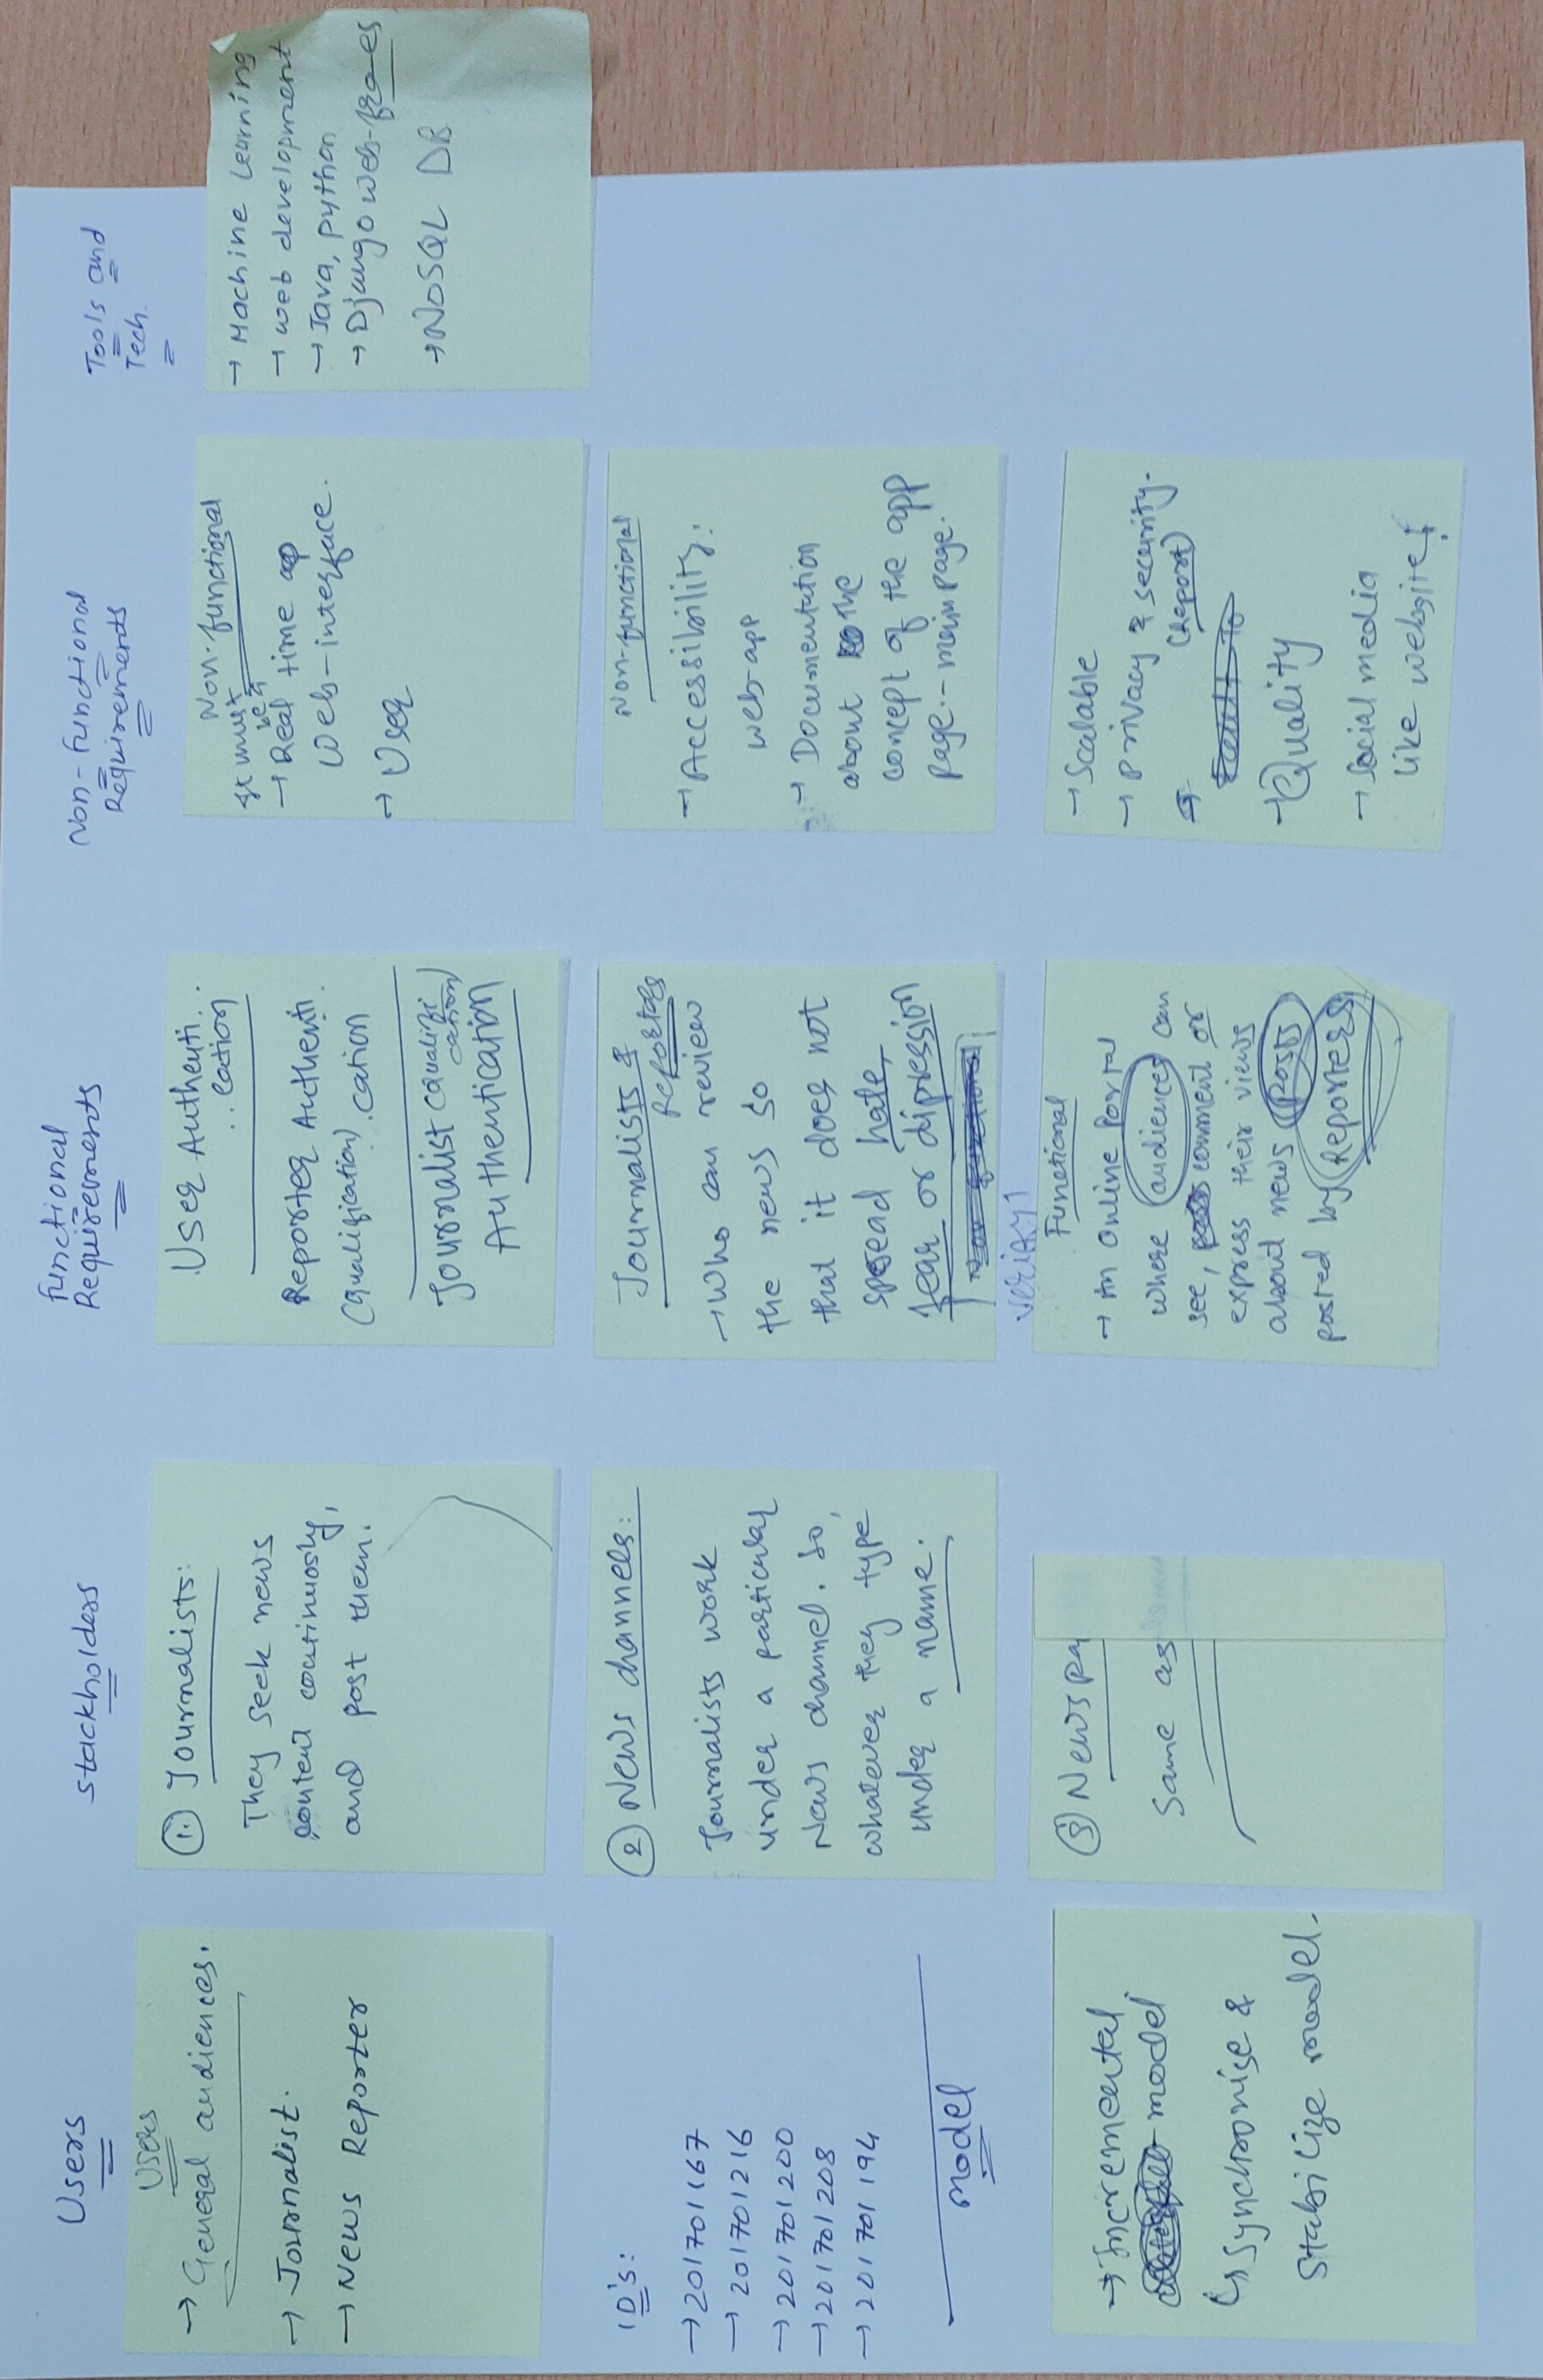 Users
Users
→ General audiences.
→ Journalist.
→ News Reporter
ID's:
→ 201701167
→ 201701216
→ 201701200
→ 201701208
→ 201701194
Model
→ Incremental
model
↳ Synchronise &
Stabilize model.
Stackholders
① Journalists:
They seek news
content continuosly,
and post them.
② News channels:
Journalists work
under a particular
News channel. So,
whatever they type
under a name.
③ Newspa
Same as
Functional
Requirements
User Authenti.
..cation
Reporter Authenti.
(qualification).cation
Journalist (qualifi
cation)
Authentication
Journalists &
Reporters
→ Who can review
the news so
that it does not
spread hate,
fear or dipression
verify
Functional
→ An online Portal
where audiences can
see, comment or
express their views
about news posts
posted by Reporters
Non-Functional
Requirements
Non-functional
It must
be a
→ Real time app
Web-interface.
→ User
Non-functional
→ Accessibility:
web-app
→ Documentation
about the
concept of the app
page.- main page.
→ Scalable
→ Privacy & security.
(Report)
→ Quality
→ Social media
like website
Tools and
Tech.
→ Machine Learning
→ web development
→ Java, python
→ Django web-frames
→ NOSQL DB